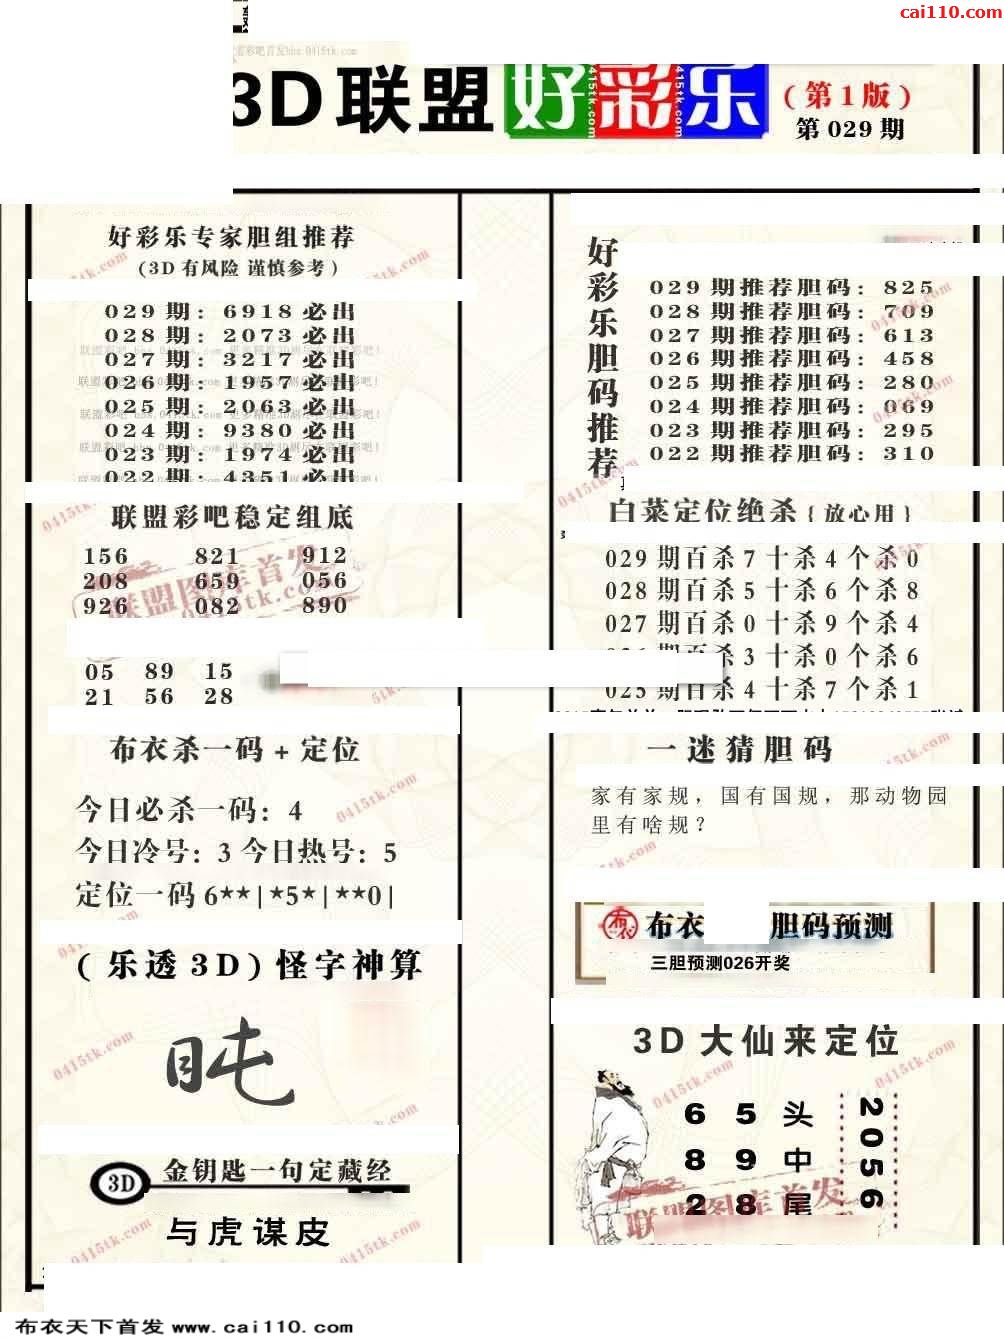 cai110.com
3D联盟 好彩乐 (第1版)
第029期
好彩乐专家胆组推荐
(3D有风险 谨慎参考)
029期: 6918必出
028期: 2073必出
027期: 3217必出
026期: 1957必出
025期: 2063必出
024期: 9380必出
023期: 1974必出
022期: 4351必出
联盟彩吧稳定组底
156 821 912
208 659 056
926 082 890
05 89 15
21 56 28
布衣杀一码+定位
今日必杀一码: 4
今日冷号: 3 今日热号: 5
定位一码6**|*5*|**0|
(乐透3D)怪字神算
3D 金钥匙一句定藏经
与虎谋皮
好彩乐胆码推荐
029期推荐胆码: 825
028期推荐胆码: 709
027期推荐胆码: 613
026期推荐胆码: 458
025期推荐胆码: 280
024期推荐胆码: 069
023期推荐胆码: 295
022期推荐胆码: 310
白菜定位绝杀{放心用}
029期百杀7十杀4个杀0
028期百杀5十杀6个杀8
027期百杀0十杀9个杀4
杀3十杀0个杀6
025期百杀4十杀7个杀1
一迷猜胆码
家有家规，国有国规，那动物园
里有啥规？
布衣 胆码预测
三胆预测026开奖
3D大仙来定位
6 5 头
8 9 中
2 8 尾
2056
联盟图库首发
0415tk.com
布衣天下首发 www.cai110.com